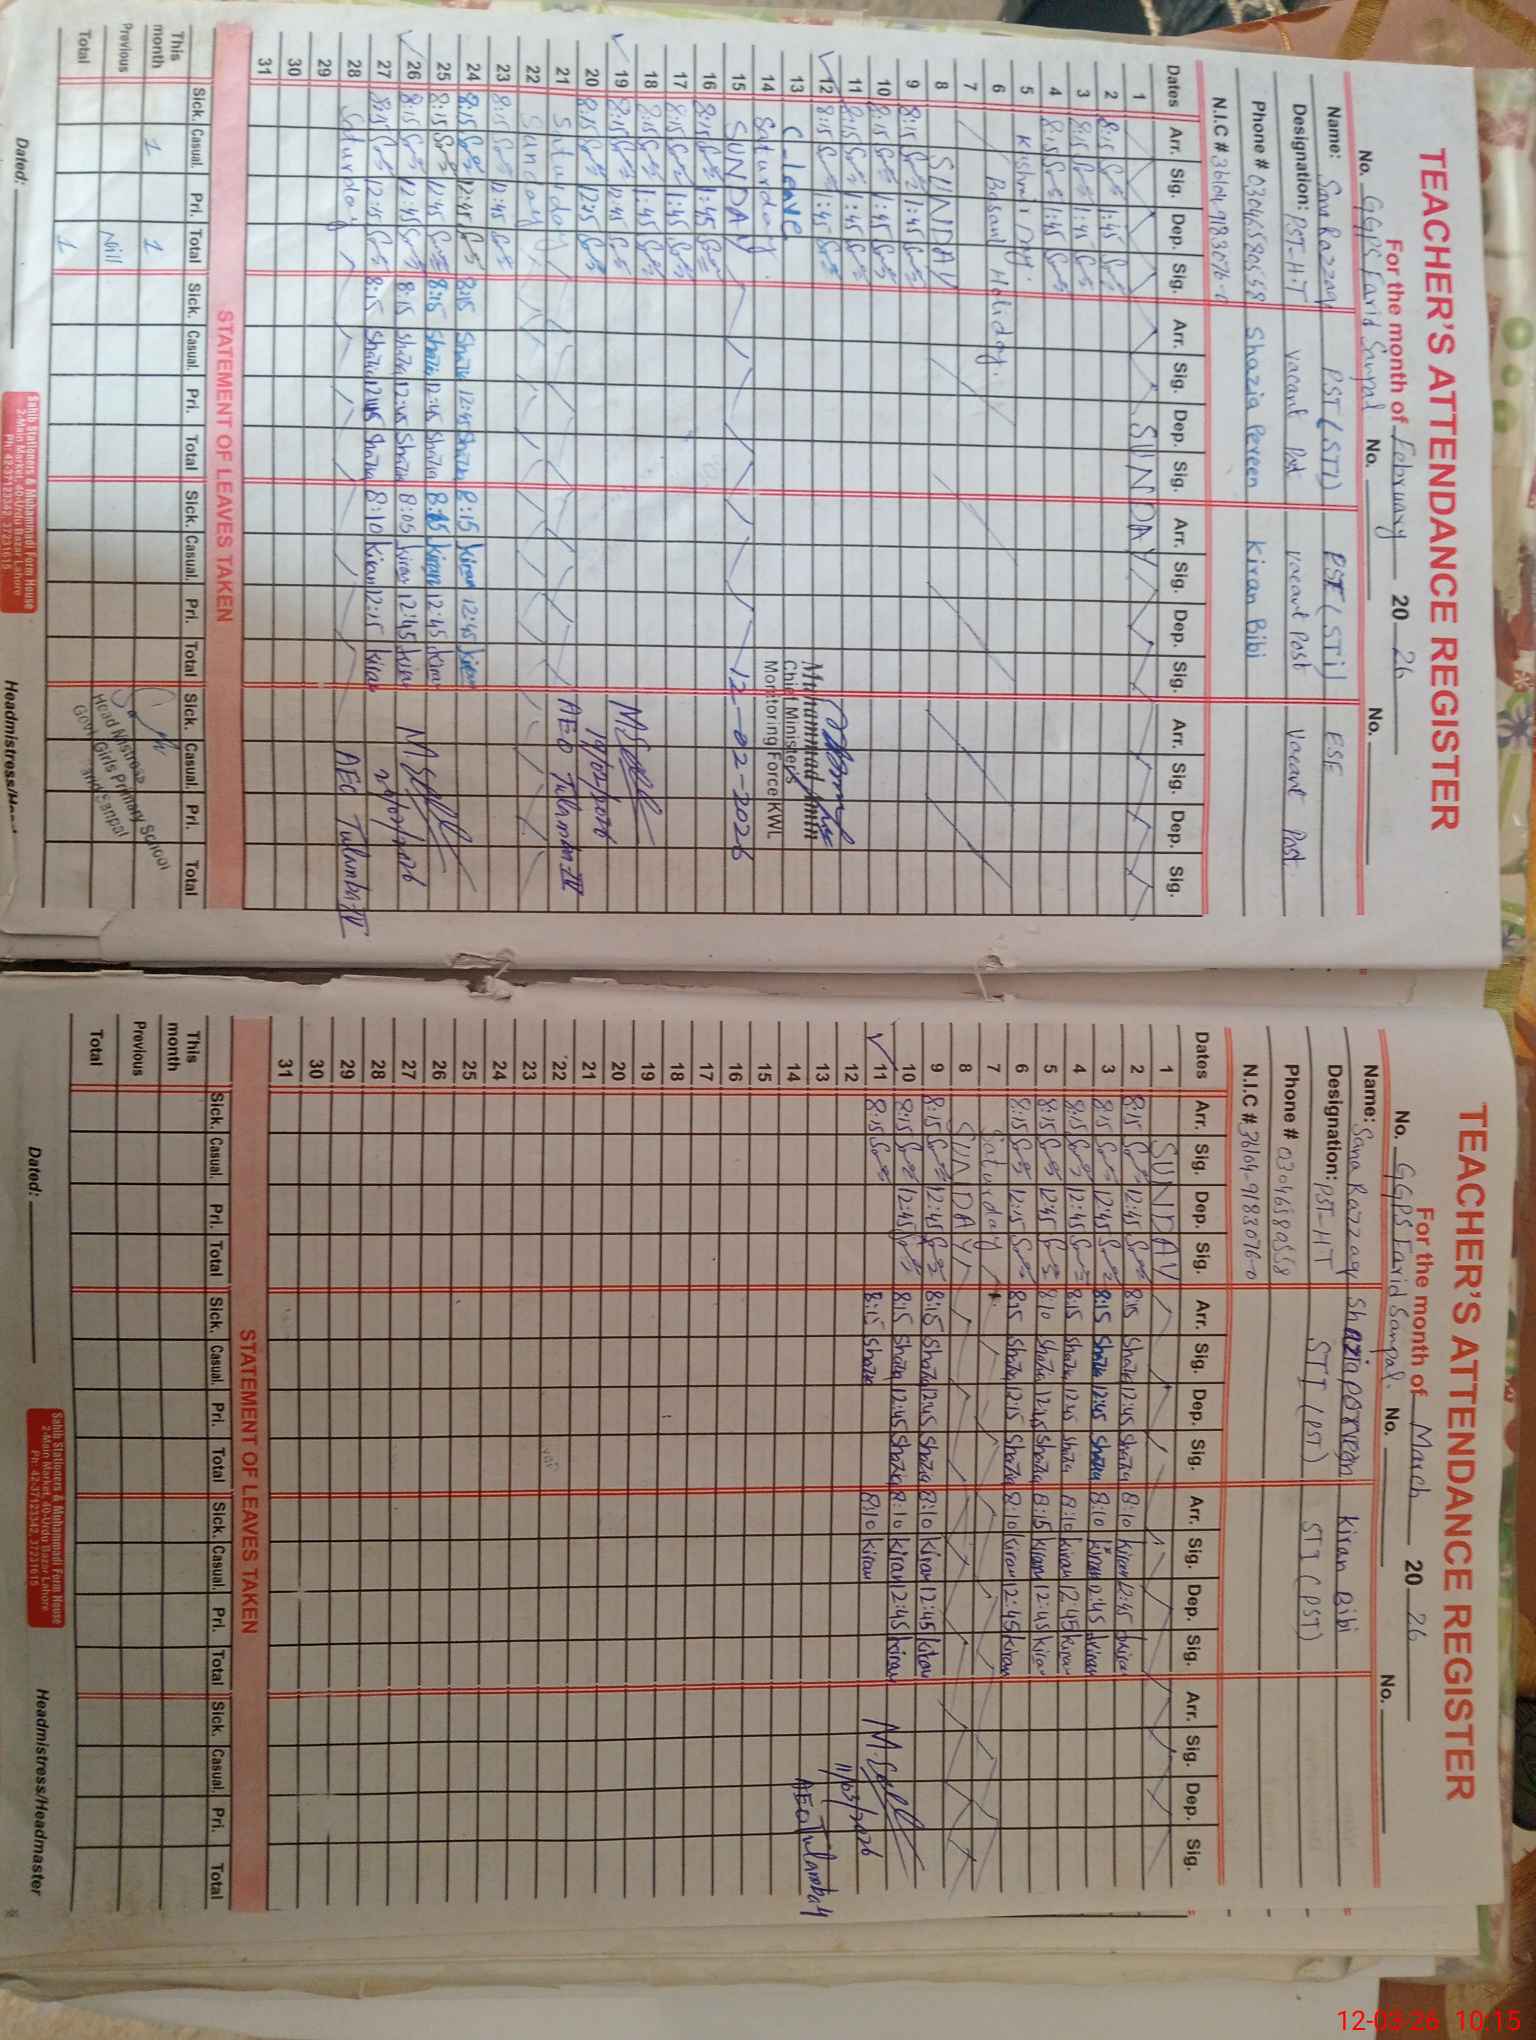 TEACHER'S ATTENDANCE REGISTER
For the month of February 2026
No. GGPS Farid Sanpal No. No.
Name: Sana Razzaq PST (STI) PST (STI) ESE
Designation: PST-HT Vacant Post Vacant Post Vacant Post
Phone # 03046580558 Shazia Perveen Kiran Bibi
N.I.C #
Dates Arr. Sig. Dep. Sig. Arr. Sig. Dep. Sig. Arr. Sig. Dep. Sig. Arr. Sig. Dep. Sig.
1 SUNDAY
2 8:15 1:45
3 8:15 1:45
4 8:15 1:45
5 Kashmir Day.
6 Basant Holiday.
7
8 SUNDAY
9 8:15 1:45
10 8:15 1:45
11 8:15 1:45
12 8:15 1:45
13 C-leave
14 Saturday.
15 SUNDAY
16 8:15 1:45
17 8:15 1:45
18 8:15 1:45
19 8:15 12:45
20 8:15 12:15
21 Saturday
22 Sunday
23 8:15 12:45
24 8:15 12:45 8:15 Shazia 12:45 Shazia 8:15 Kiran 12:45 Kiran
25 8:15 12:45 8:15 Shazia 12:45 Shazia 8:15 Kiran 12:45 Kiran
26 8:15 12:45 8:15 Shazia 12:45 Shazia 8:05 Kiran 12:45 Kiran
27 8:15 12:15 8:15 Shazia 12:45 Shazia 8:10 Kiran 12:15 Kiran
28 Saturday
29
30
31
Muhammad Amin
Chief Minister's
Monitoring Force KWL
12-02-2026
19/02/2026
AEO Tulamba-IV
26/02/2026
AEO Tulamba-IV
STATEMENT OF LEAVES TAKEN
Sick. Casual. Pri. Total Sick. Casual. Pri. Total Sick. Casual. Pri. Total Sick. Casual. Pri. Total
This month 1 1
Previous Nill
Total 1
Head Mistress
Govt. Girls Primary School
Dated: Headmistress/
Sahib Stationers & Muhammadi Form House
2-Main Market, 40-Urdu Bazar Lahore
Ph: 42-37123342, 37231615
TEACHER'S ATTENDANCE REGISTER
For the month of March 2026
No. GGPS Farid Sanpal. No. No.
Name: Sana Razzaq Shazia Perveen Kiran Bibi
Designation: PST-HT STI (PST) STI (PST)
Phone # 03046580558
N.I.C # 36104-9183076-0
Dates Arr. Sig. Dep. Sig. Arr. Sig. Dep. Sig. Arr. Sig. Dep. Sig. Arr. Sig. Dep. Sig.
1 SUNDAY
2 8:15 12:45 8:15 Shazia 12:45 Shazia 8:10 Kiran 12:45 Kiran
3 8:15 12:45 8:15 Shazia 12:45 Shazia 8:10 Kiran 12:45 Kiran
4 8:15 12:45 8:15 Shazia 12:45 Shazia 8:10 Kiran 12:45 Kiran
5 8:15 12:45 8:10 Shazia 12:45 Shazia 8:15 Kiran 12:45 Kiran
6 8:15 12:15 8:15 Shazia 12:15 Shazia 8:10 Kiran 12:45 Kiran
7 Saturday
8 SUNDAY
9 8:15 12:45 8:15 Shazia 12:45 Shazia 8:10 Kiran 12:45 Kiran
10 8:15 12:45 8:15 Shazia 12:45 Shazia 8:10 Kiran 12:45 Kiran
11 8:15 8:15 Shazia 8:10 Kiran
12
13
14
15
16
17
18
19
20
21
22
23
24
25
26
27
28
29
30
31
11/03/2026
AEO Tulamba 4
STATEMENT OF LEAVES TAKEN
Sick. Casual. Pri. Total Sick. Casual. Pri. Total Sick. Casual. Pri. Total Sick. Casual. Pri. Total
This month
Previous
Total
Dated: Headmistress/Headmaster
Sahib Stationers & Muhammadi Form House
2-Main Market, 40-Urdu Bazar Lahore
Ph: 42-37123342, 37231615
12-03-26 10:15